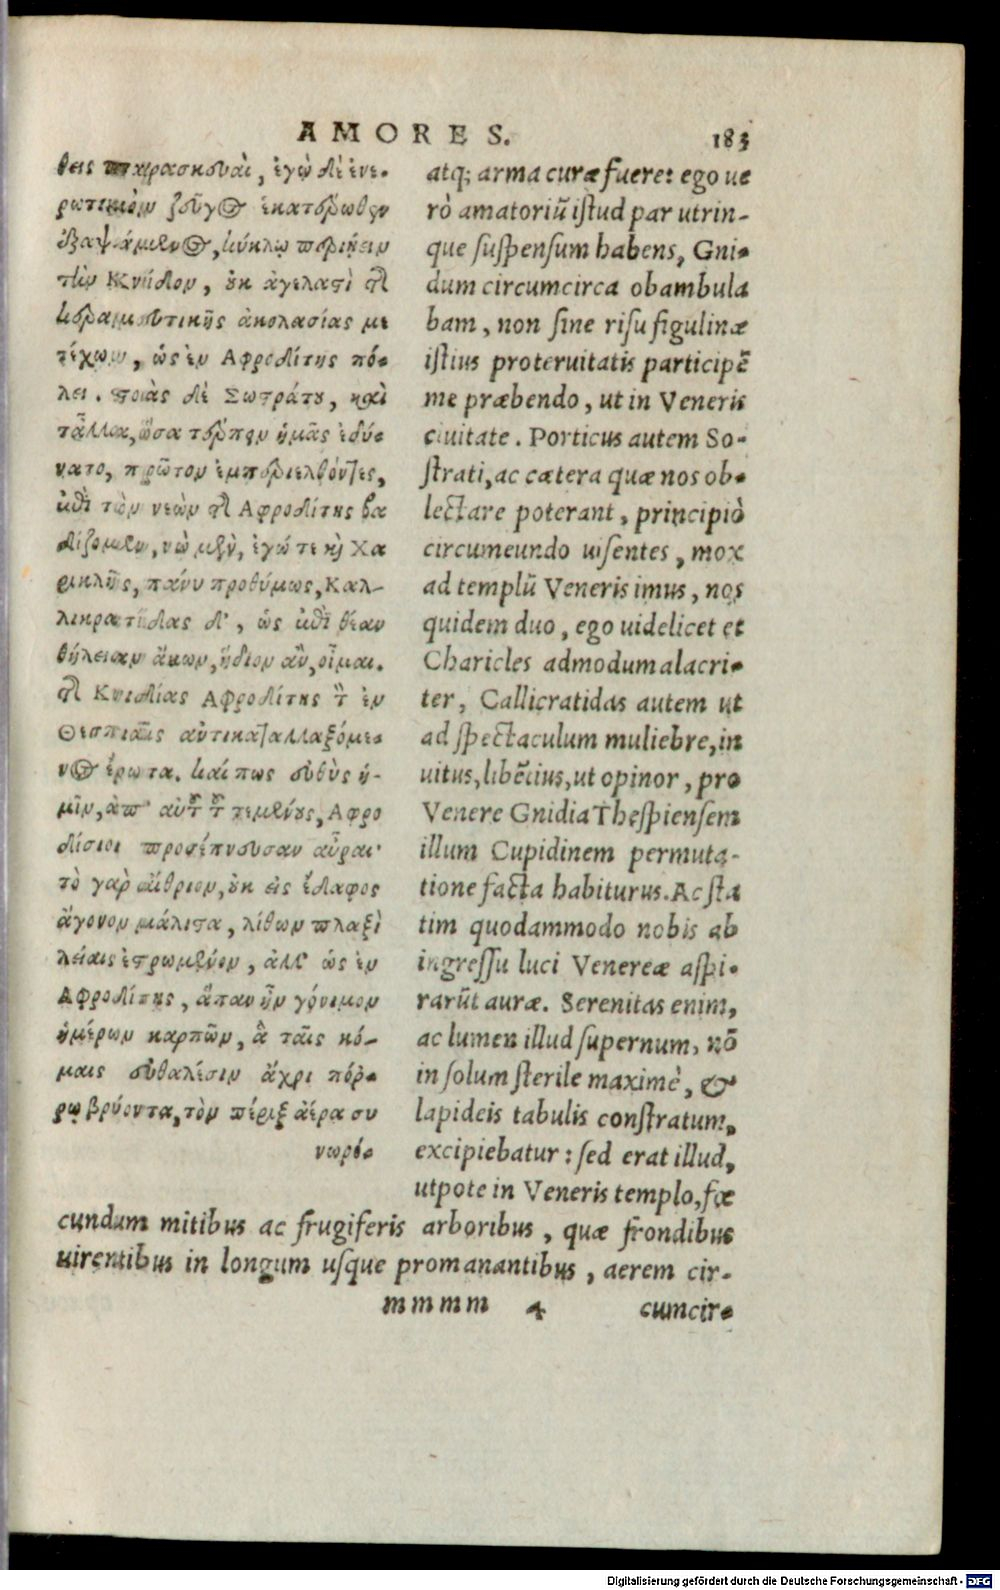 AMORES. 183
θεις παρασκουαὶ, ἐγὼ δὲ ἐνε-
ρωτικὸν ζεῦγος ἑκατέρωθεν
ἐξαψάμενος, κύκλῳ περιῄειν
τὴν Κνίδον, οὐκ ἀγελαστὶ τῆς
κεραμευτικῆς ἀκολασίας με
τέχων, ὡς ἐν Ἀφροδίτης πό-
λει. στοὰς δὲ Σωστράτου, καὶ
τἄλλα, ὅσα τέρπειν ἡμᾶς ἐδύ-
νατο, πρῶτον ἐμπεριελθόντες,
ἐπὶ τὸν νεὼν τῆς Ἀφροδίτης βα
δίζομεν, νὼ μὲν, ἐγώ τε καὶ Χα
ρικλῆς, πάνυ προθύμως, Καλ-
λικρατίδας δ', ὡς ἐπὶ θέαν
θήλειαν ἄκων, ἥδιον ἂν, οἶμαι.
τῆς Κνιδίας Ἀφροδίτης τὸν ἐν
Θεσπιαῖς ἀντικαταλλαξόμε-
νος ἔρωτα. καί πως εὐθὺς ἡ-
μῖν, ἀπ' αὐτοῦ τοῦ τεμένους, Ἀφρο
δίσιοι προσέπνευσαν αὖραι·
τὸ γὰρ αἴθριον, οὐκ εἰς ἔδαφος
ἄγονον μάλιστα, λίθων πλαξὶ
λείαις ἐστρωμένον, ἀλλ' ὡς ἐν
Ἀφροδίτης, ἅπαν ἦν γόνιμον
ἡμέρων καρπῶν, ἃ ταῖς κό-
μαις εὐθαλέσιν ἄχρι πόρ-
ρω βρύοντα, τὸν πέριξ ἀέρα συ
νωρό-
atq; arma curæ fuere: ego ue
rò amatoriū istud par utrin-
que suspensum habens, Gni-
dum circumcirca obambula
bam, non sine risu figulinæ
istius proteruitatis participē
me præbendo, ut in Veneris
ciuitate. Porticus autem So-
strati, ac cætera quæ nos ob-
lectare poterant, principiò
circumeundo uisentes, mox
ad templū Veneris imus, nos
quidem duo, ego uidelicet et
Charicles admodum alacri-
ter, Callicratidas autem ut
ad spectaculum muliebre, in
uitus, libētius, ut opinor, pro
Venere Gnidia Thespiensem
illum Cupidinem permuta-
tione facta habiturus. Ac sta
tim quodammodo nobis ab
ingressu luci Venereæ aspi-
rarūt auræ. Serenitas enim,
ac lumen illud supernum, nō
in solum sterile maximè, &
lapideis tabulis constratum,
excipiebatur: sed erat illud,
utpote in Veneris templo, fœ
cundum mitibus ac frugiferis arboribus, quæ frondibus
uirentibus in longum usque promanantibus, aerem cir-
mmmm 4 cumcir-
Digitalisierung gefördert durch die Deutsche Forschungsgemeinschaft - DFG